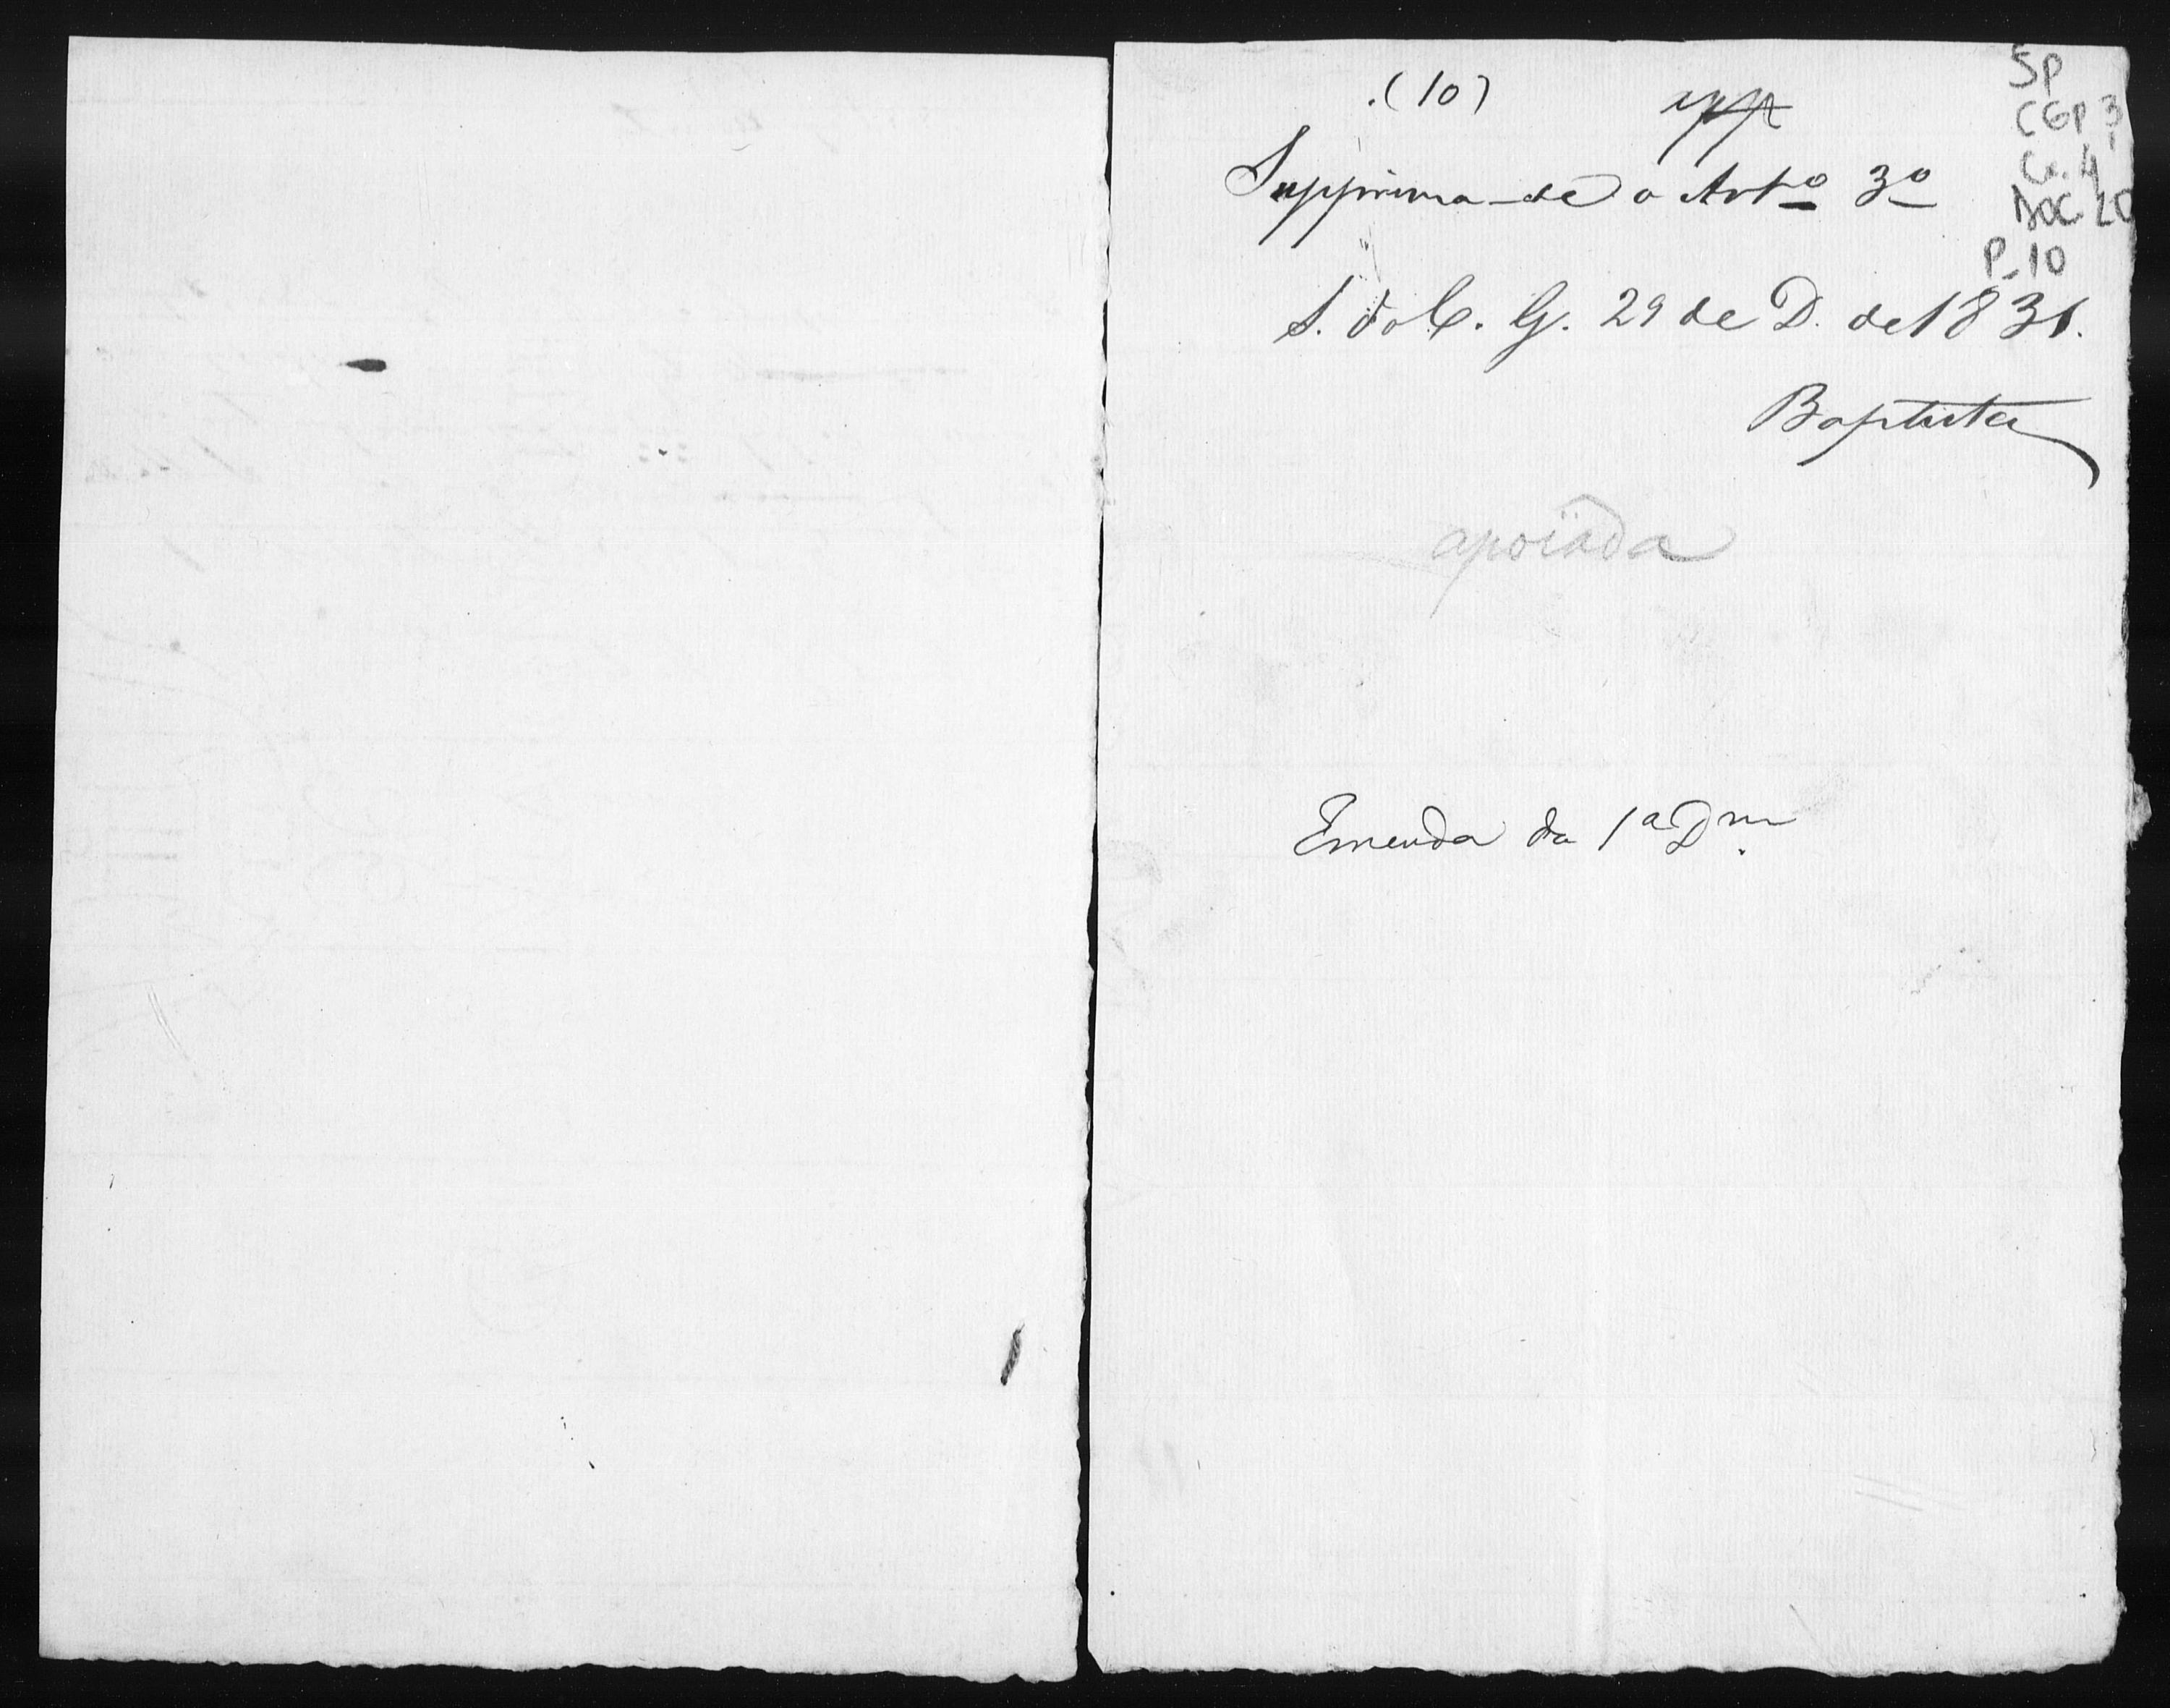 .(10)
SP
CGP 3
Cx. 4
DOC 20
P_10
Supprima-se o Arto 3o
S. do C. G. 29 de D. de 1831.
Baptista
apoiada
Emenda da 1a Dm